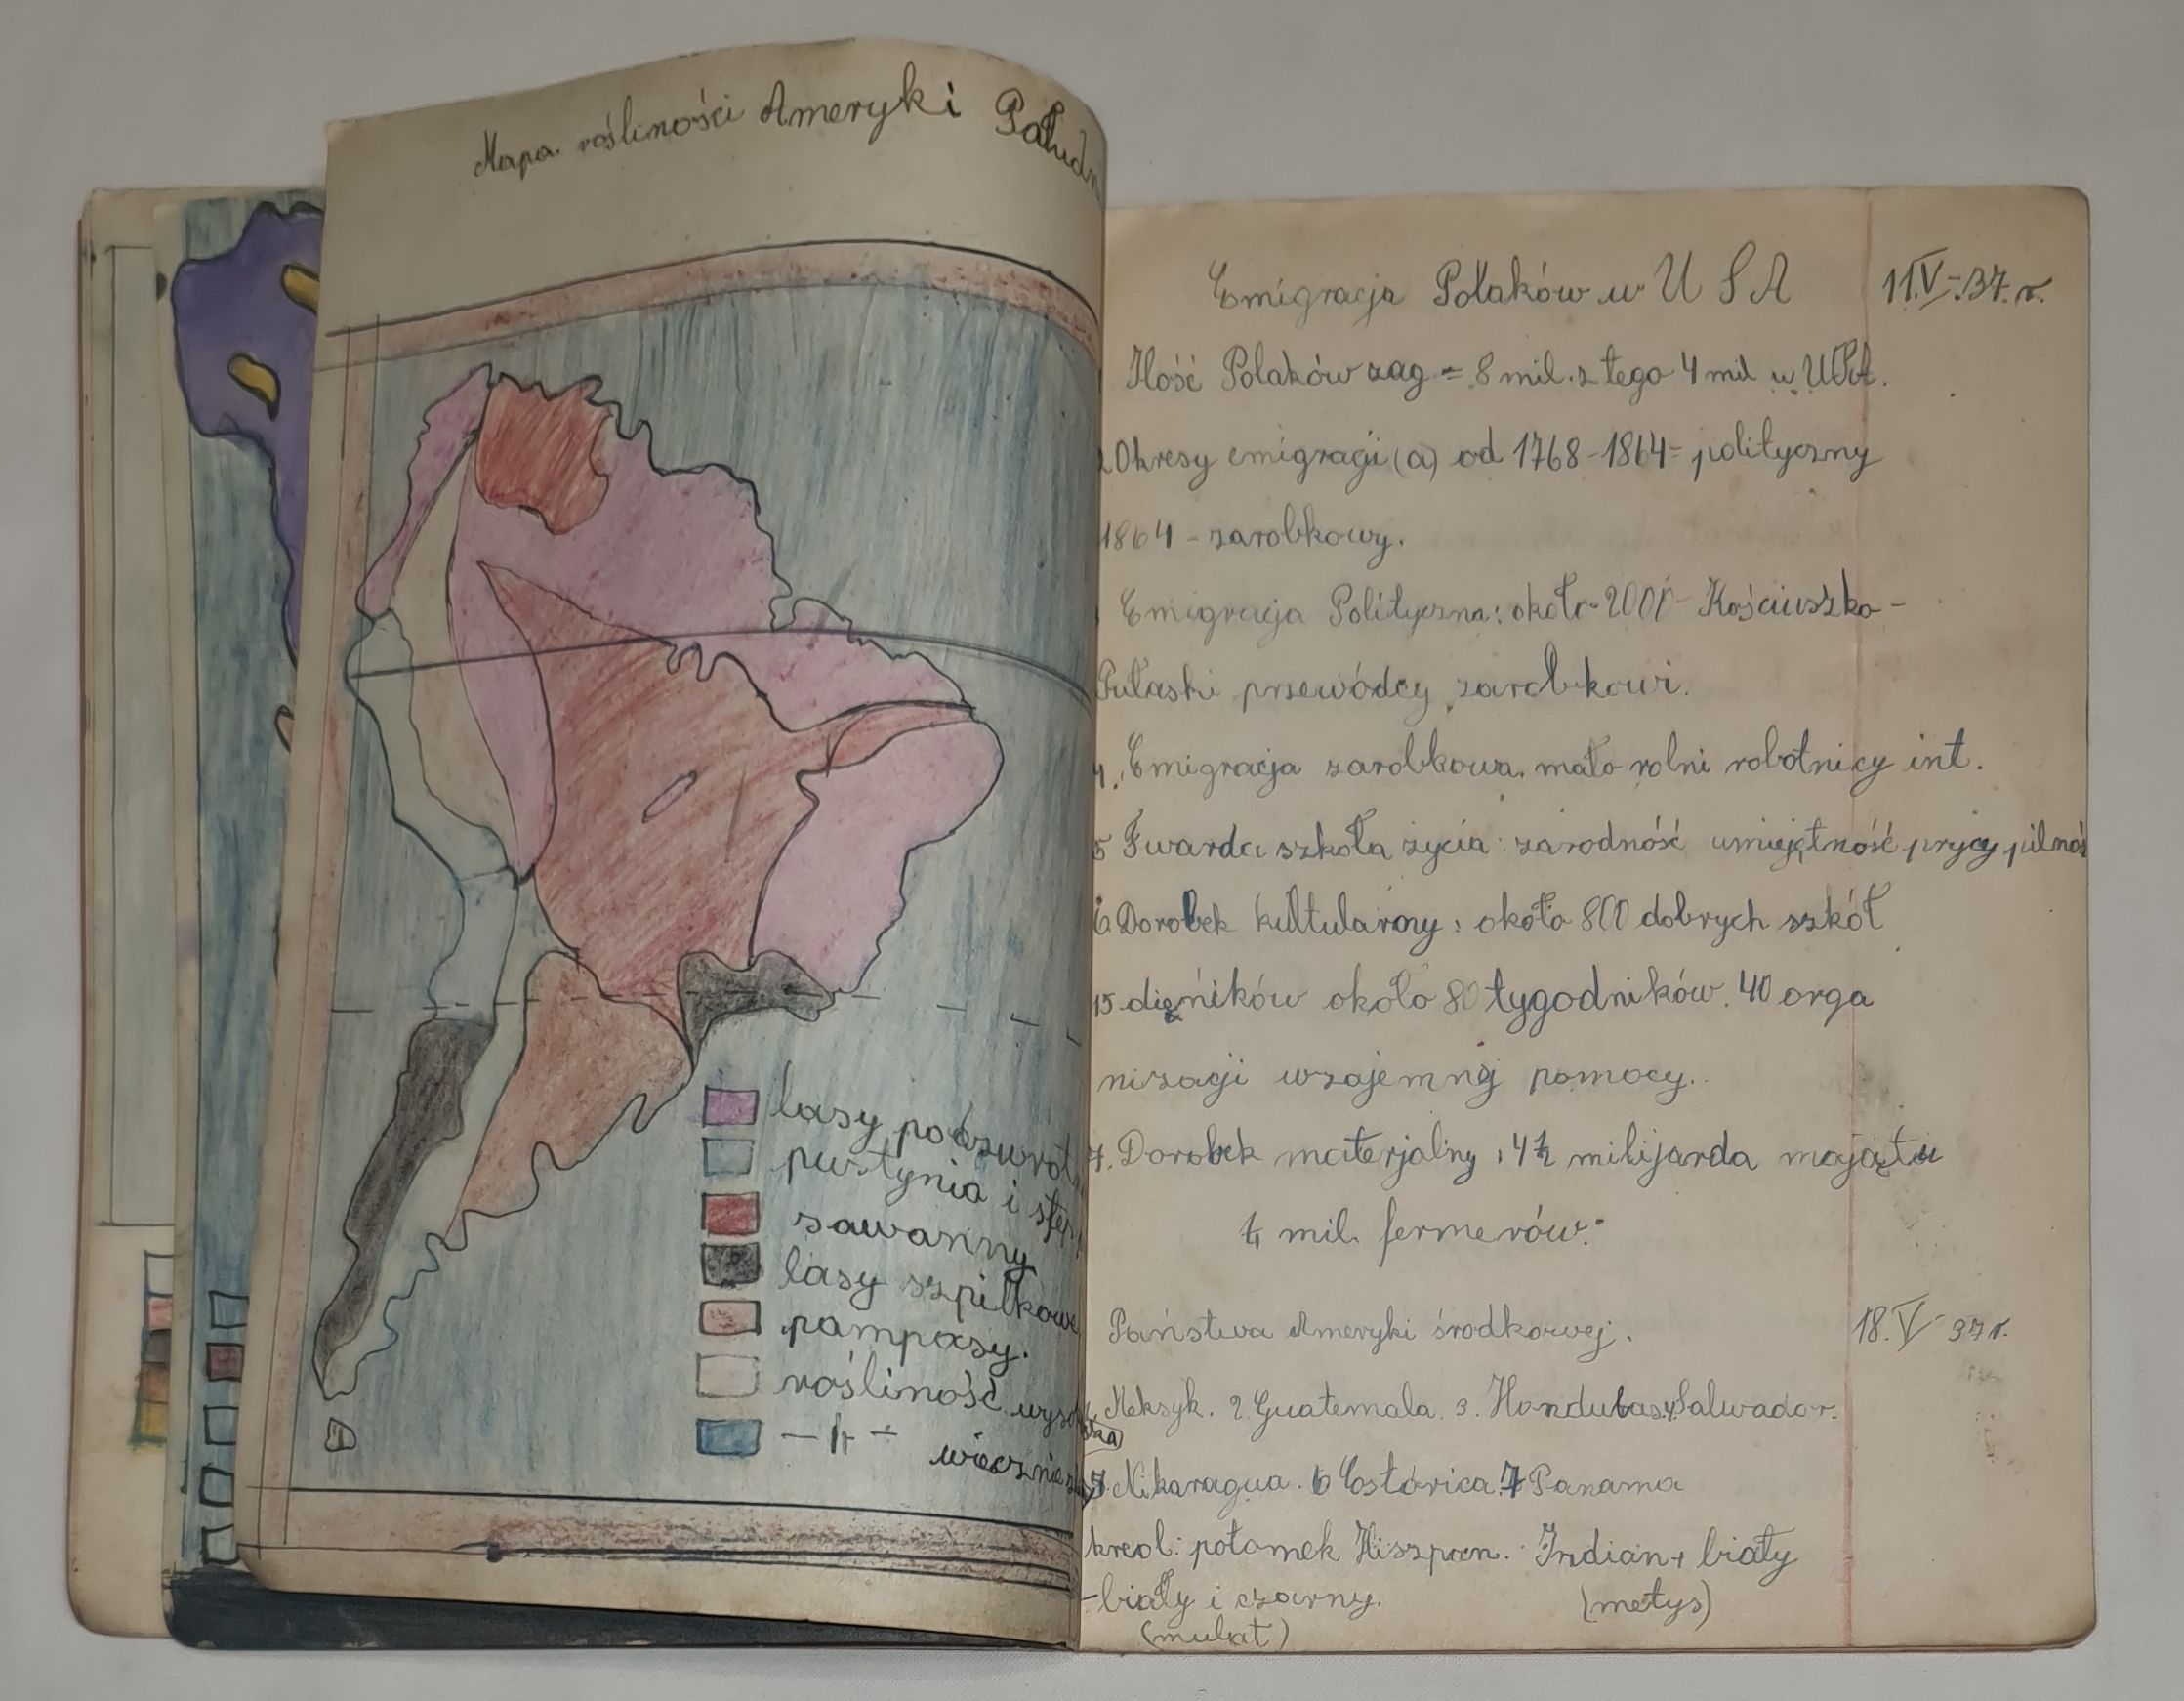 Mapa rośliności Ameryki Połudn
lasy podzwrot
pustynia i step
sawanny
lasy szpilkowe
pampasy.
rośliność wyso
ska)
— 11 — wiecznie
Emigracja Polaków w U S A 11.V.37.r.
Ilość Polaków zag = 8 mil. z tego 4 mil w USA.
2 Okresy emigracji (a) od 1768-1864= polityczny
1864 - zarobkowy.
Emigracja Polityczna: około Kościuszko -
Pułaski przewódcy zarobkowi.
4. Emigracja zarobkowa. mało rolni robotnicy int.
5 Twarda szkoła życia: zarodność umiejętność pracy pilnoś
6 Dorobek kulturarny: około 800 dobrych szkół
15 dzięników około 80 tygodników. 40 orga
nizacji wzajemnej pomocy.
7. Dorobek materjalny, milijarda majątu
mil. fermerów.
Państwa Ameryki środkowej. 18.V 37 r.
1. Meksyk. 2. Guatemala. 3. Honduras 4. Salwador.
5. Nikaragua. 6 Costorica 7 Panama
kreol: potomek Hiszpan. Indian + biały
- biały i czarny. (metys)
(mulat)